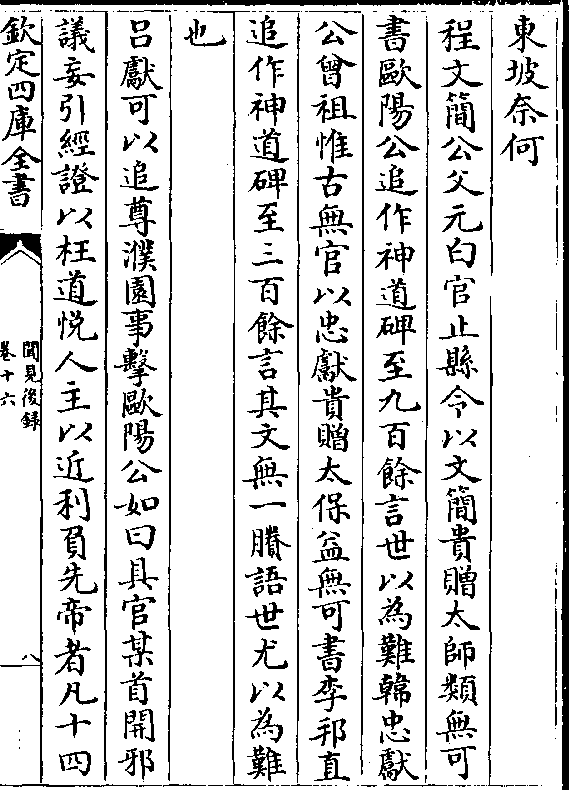 東坡奈何
程文簡公父元白官止縣令以文簡貴贈太師類無可
書歐陽公追作神道碑至九百餘言世以為難韓忠獻
公曾祖惟古無官以忠獻貴贈太保益無可書李邦直
追作神道碑至三百餘言其文無一賸語世尤以為難
也
吕獻可以追尊濮園事擊歐陽公如曰具官某首開邪
議妄引經證以枉道悦人主以近利負先帝者凡十四
欽定四庫全書
聞見後録
卷十六
八